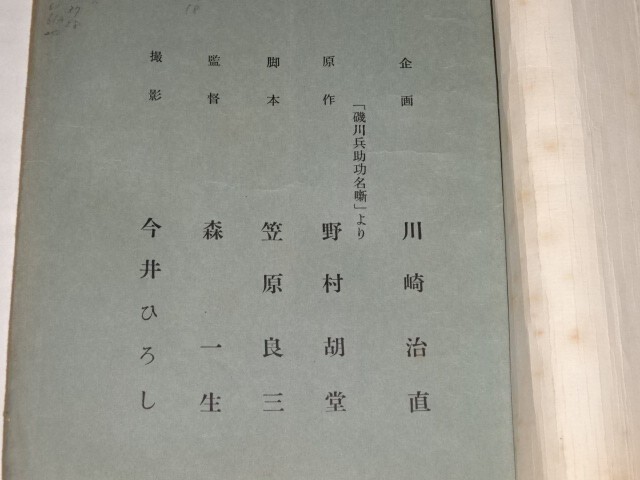 企画 川崎治直
原作 野村胡堂
「磯川兵助功名噺」より
脚本 笠原良三
監督 森一生
撮影 今井ひろし
18